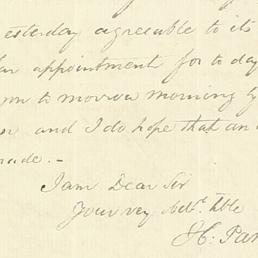 esterday agreeable to its
appointment for to day
to morrow morning by
and I do hope that an
made. -
I am Dear Sir
Your very
H: Par